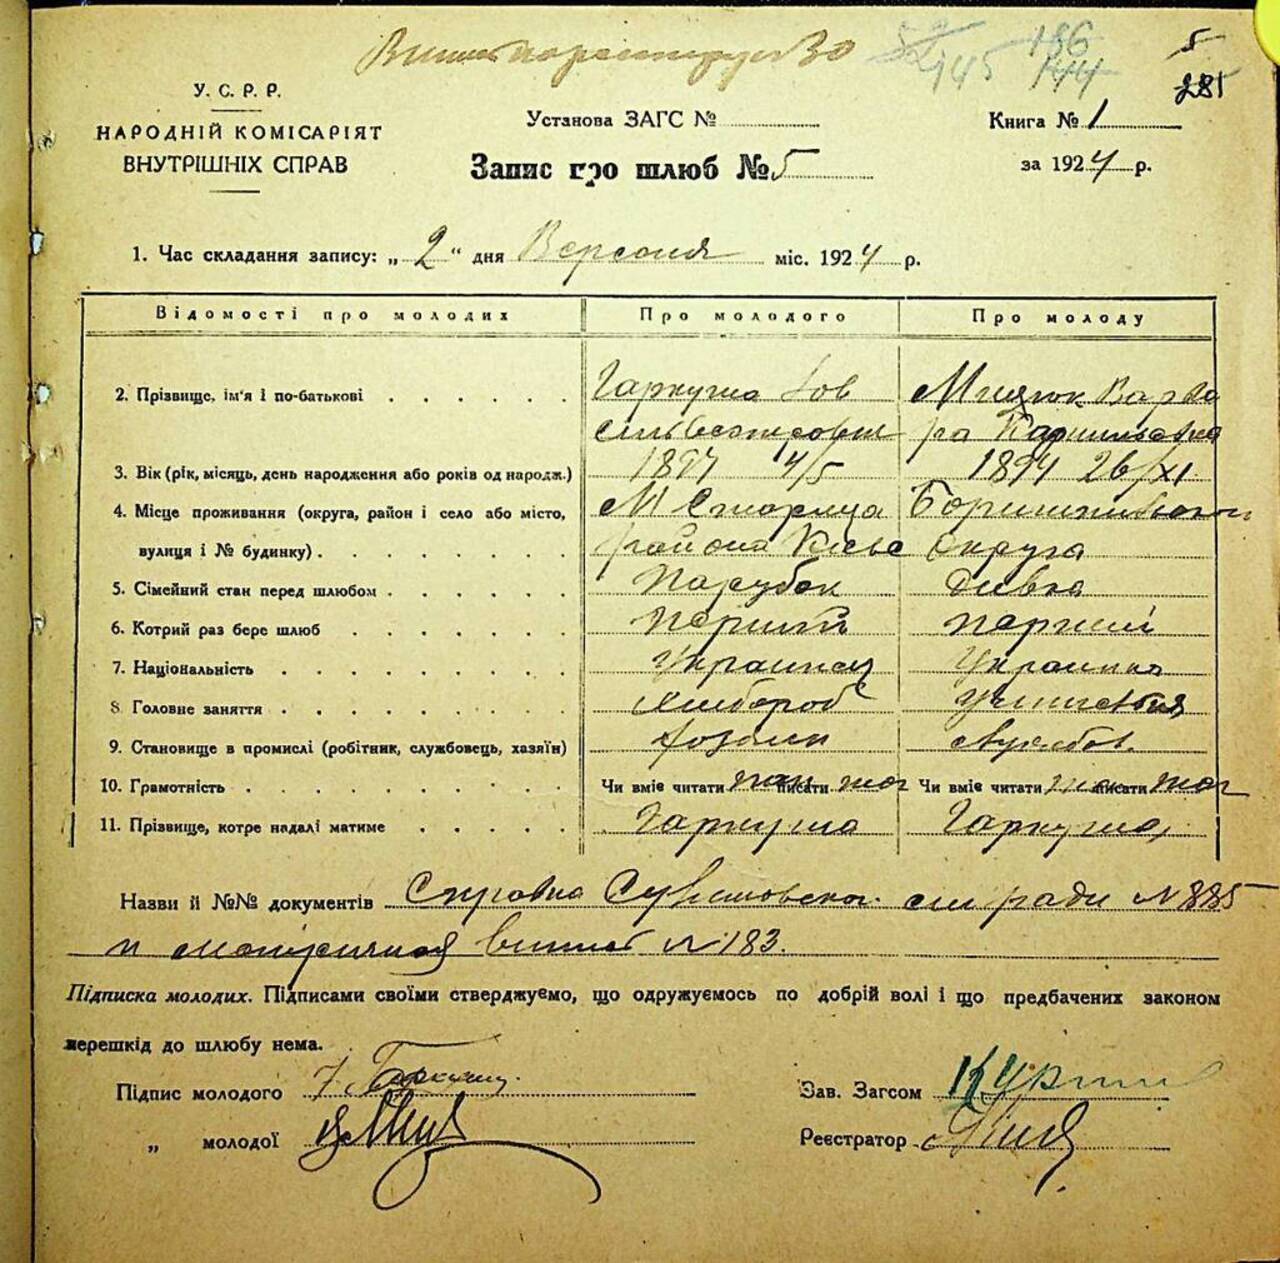 5
145 186
144
281
У. С. Р. Р.
НАРОДНІЙ КОМІСАРІЯТ
ВНУТРІШНІХ СПРАВ
Установа ЗАГС №
Запис про шлюб № 5
Книга № 1
за 1924 р.
1. Час складання запису: „ 2 “ дня Вересня міс. 1924 р.
Відомості про молодих Про молодого Про молоду
2. Прізвище, ім'я і по-батькові Гаркуша Іов Мицюк Варва
сильвестрович ра
3. Вік (рік, місяць, день народження або років од народж.) 1897 4/5 1894 26/XI
4. Місце проживання (округа, район і село або місто, М Стариця Бориспільського
вулиця і № будинку) района Київс Округа
5. Сімейний стан перед шлюбом Парубок Дивка
6. Котрий раз бере шлюб Перший первий
7. Національність Украинец Украинка
8. Головне заняття Хлибороб Учителька
9. Становище в промислі (робітник, службовець, хазяїн) Хозяин службов.
10. Грамотність Чи вміє читати так писати так Чи вміє читати так писати так
11. Прізвище, котре надалі матиме Гаркуша Гаркуша
Назви й №№ документів Справка сил ради № 885
и метрична випис № 183.
Підписка молодих. Підписами своїми стверджуємо, що одружуємось по добрій волі і що предбачених законом
перешкід до шлюбу нема.
Підпис молодого Гаркуша Зав. Загсом
„ молодої Реєстратор